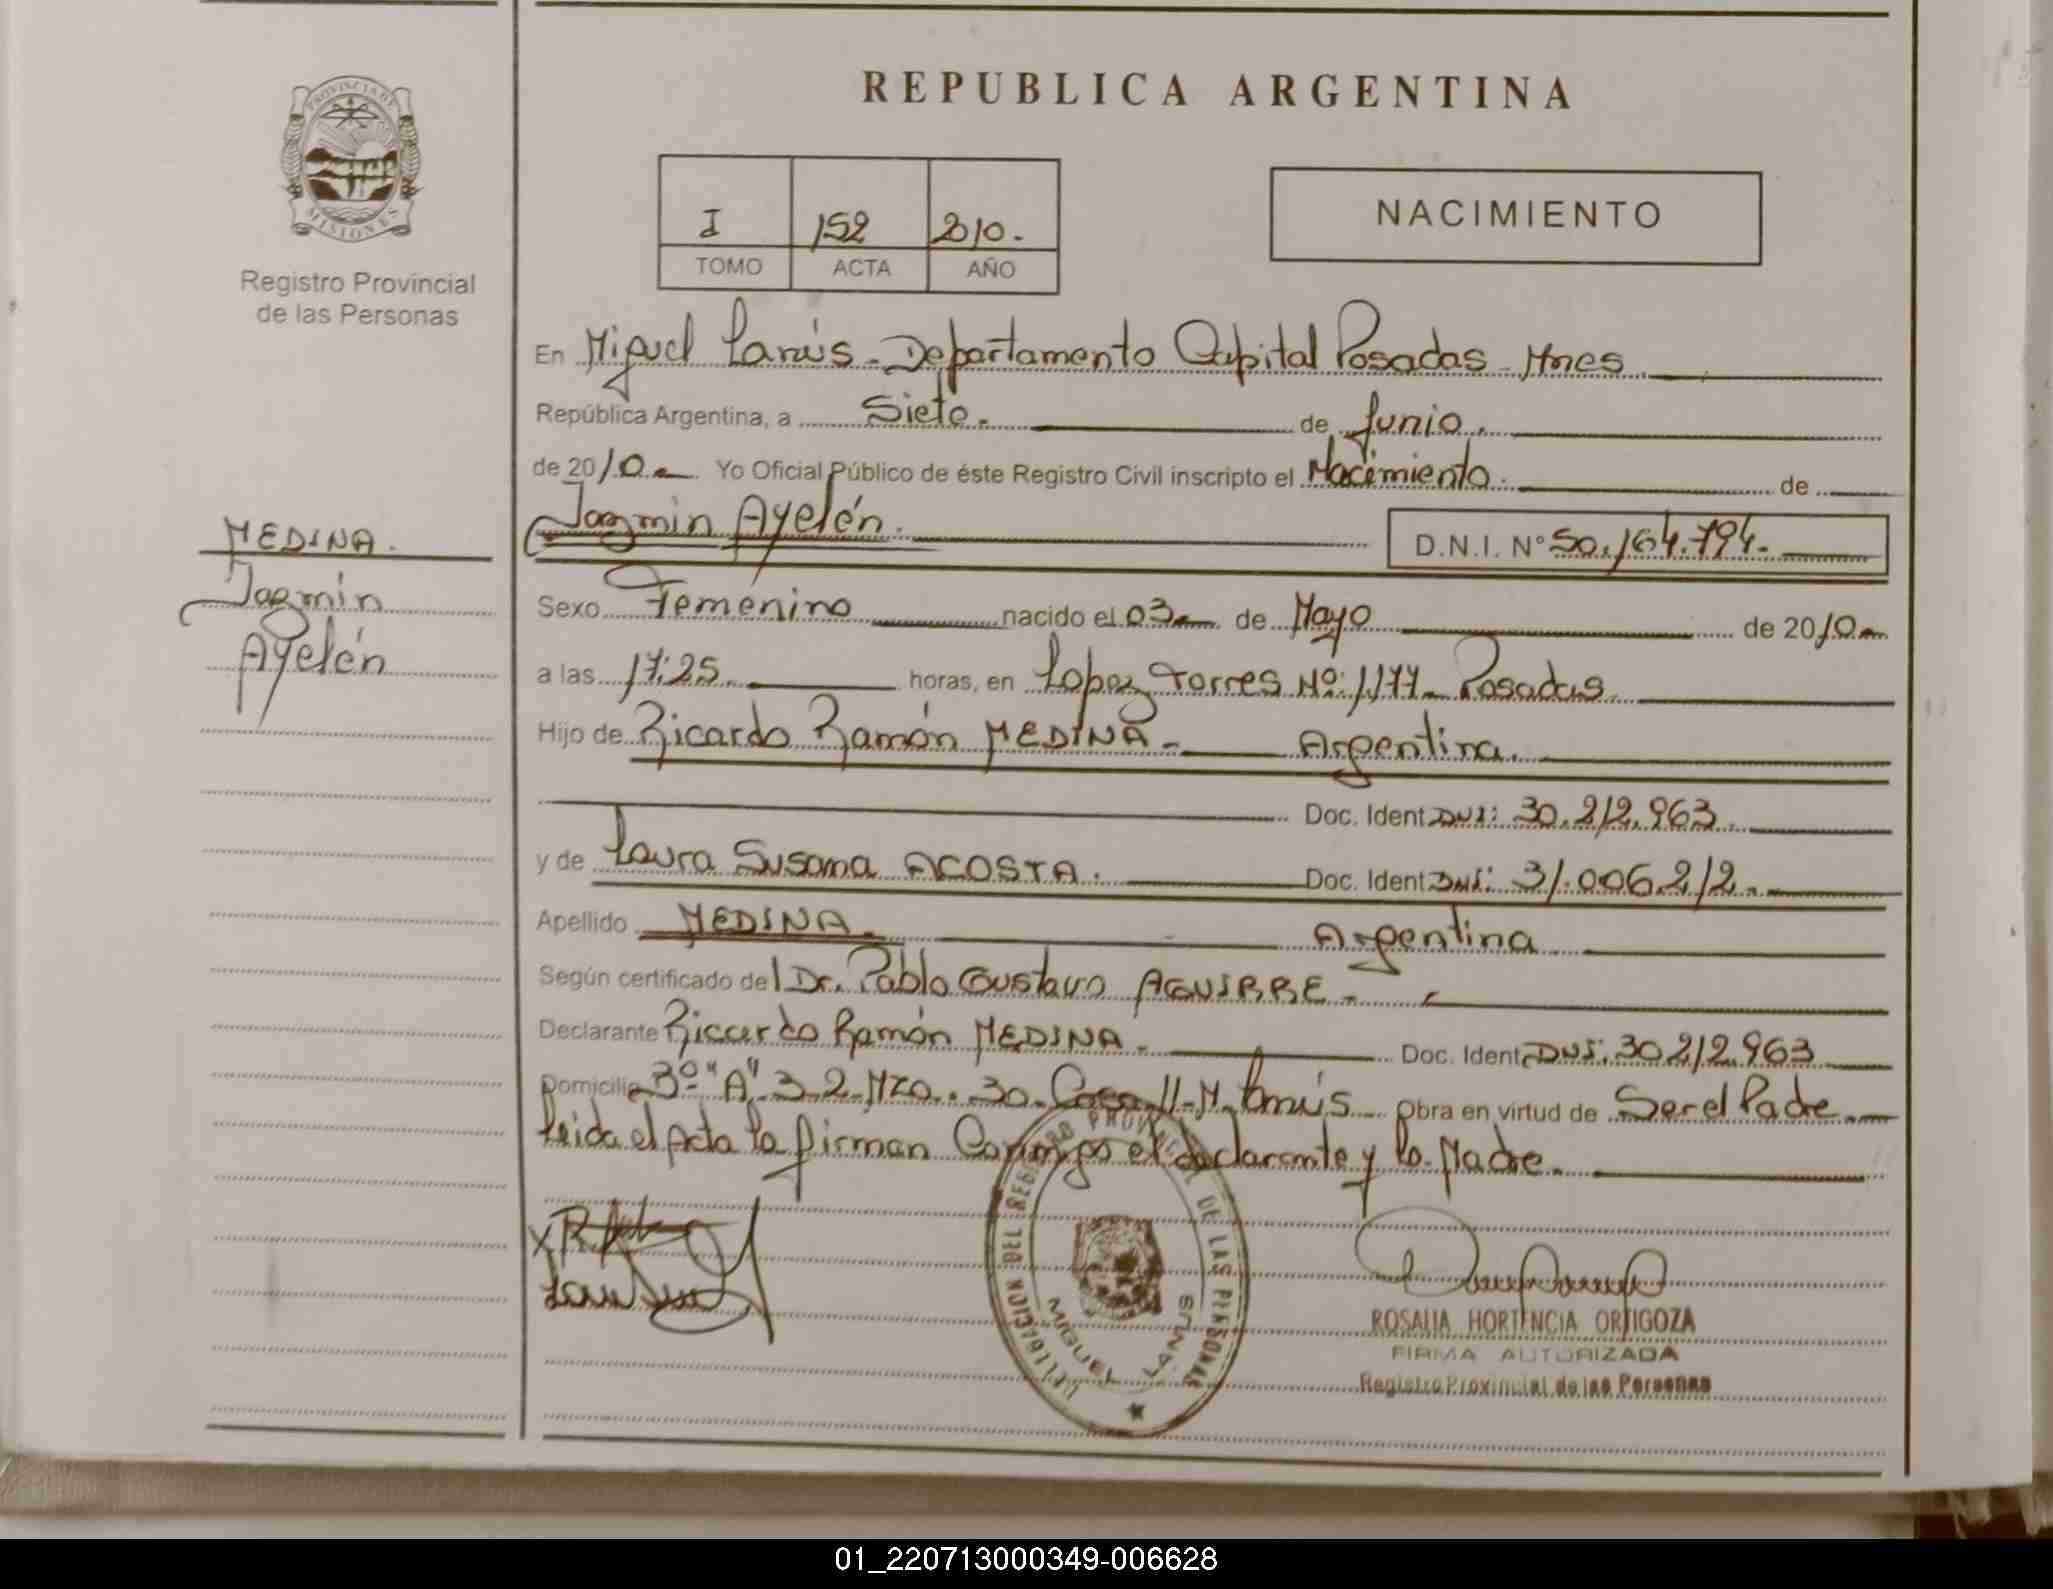 REPUBLICA ARGENTINA
PROVINCIA DE
MISIONES
Registro Provincial
de las Personas
I 152 2010.
TOMO ACTA AÑO
NACIMIENTO
En Miguel Lanús - Departamento Capital Posadas Mnes
República Argentina, a Siete. de Junio.
de 2010 Yo Oficial Público de éste Registro Civil inscripto el Nacimiento. de
Jazmin Ayelén. D.N.I. N° 50.164.794.
MEDINA.
Jazmin
Ayelén
Sexo Femenino nacido el 03 de Mayo de 2010
a las 17:25 horas, en Lopez Torres Nº: 1177 Posadas.
Hijo de Ricardo Ramón MEDINA - Argentina.
Doc. Ident DNI: 30.212.963.
y de Laura Susana ACOSTA. Doc. Ident DNI: 31.006.212.
Apellido MEDINA. Argentina
Según certificado del Dr. Pablo Gustavo AGUIRRE -
Declarante Ricardo Ramón MEDINA. Doc. Ident DNI: 30.212.963
Domicilio 3º "A" 32 Mza. 30 Casa 11 - M. Lanús obra en virtud de Ser el Padre
leida el Acta la firman Conmigo el declarante y la Madre.
DELEGACION DEL REGISTRO PROVINCIAL DE LAS PERSONAS
MIGUEL LANUS
ROSALIA HORTENCIA ORTIGOZA
FIRMA AUTORIZADA
Registro Provincial de las Personas
01_220713000349-006628